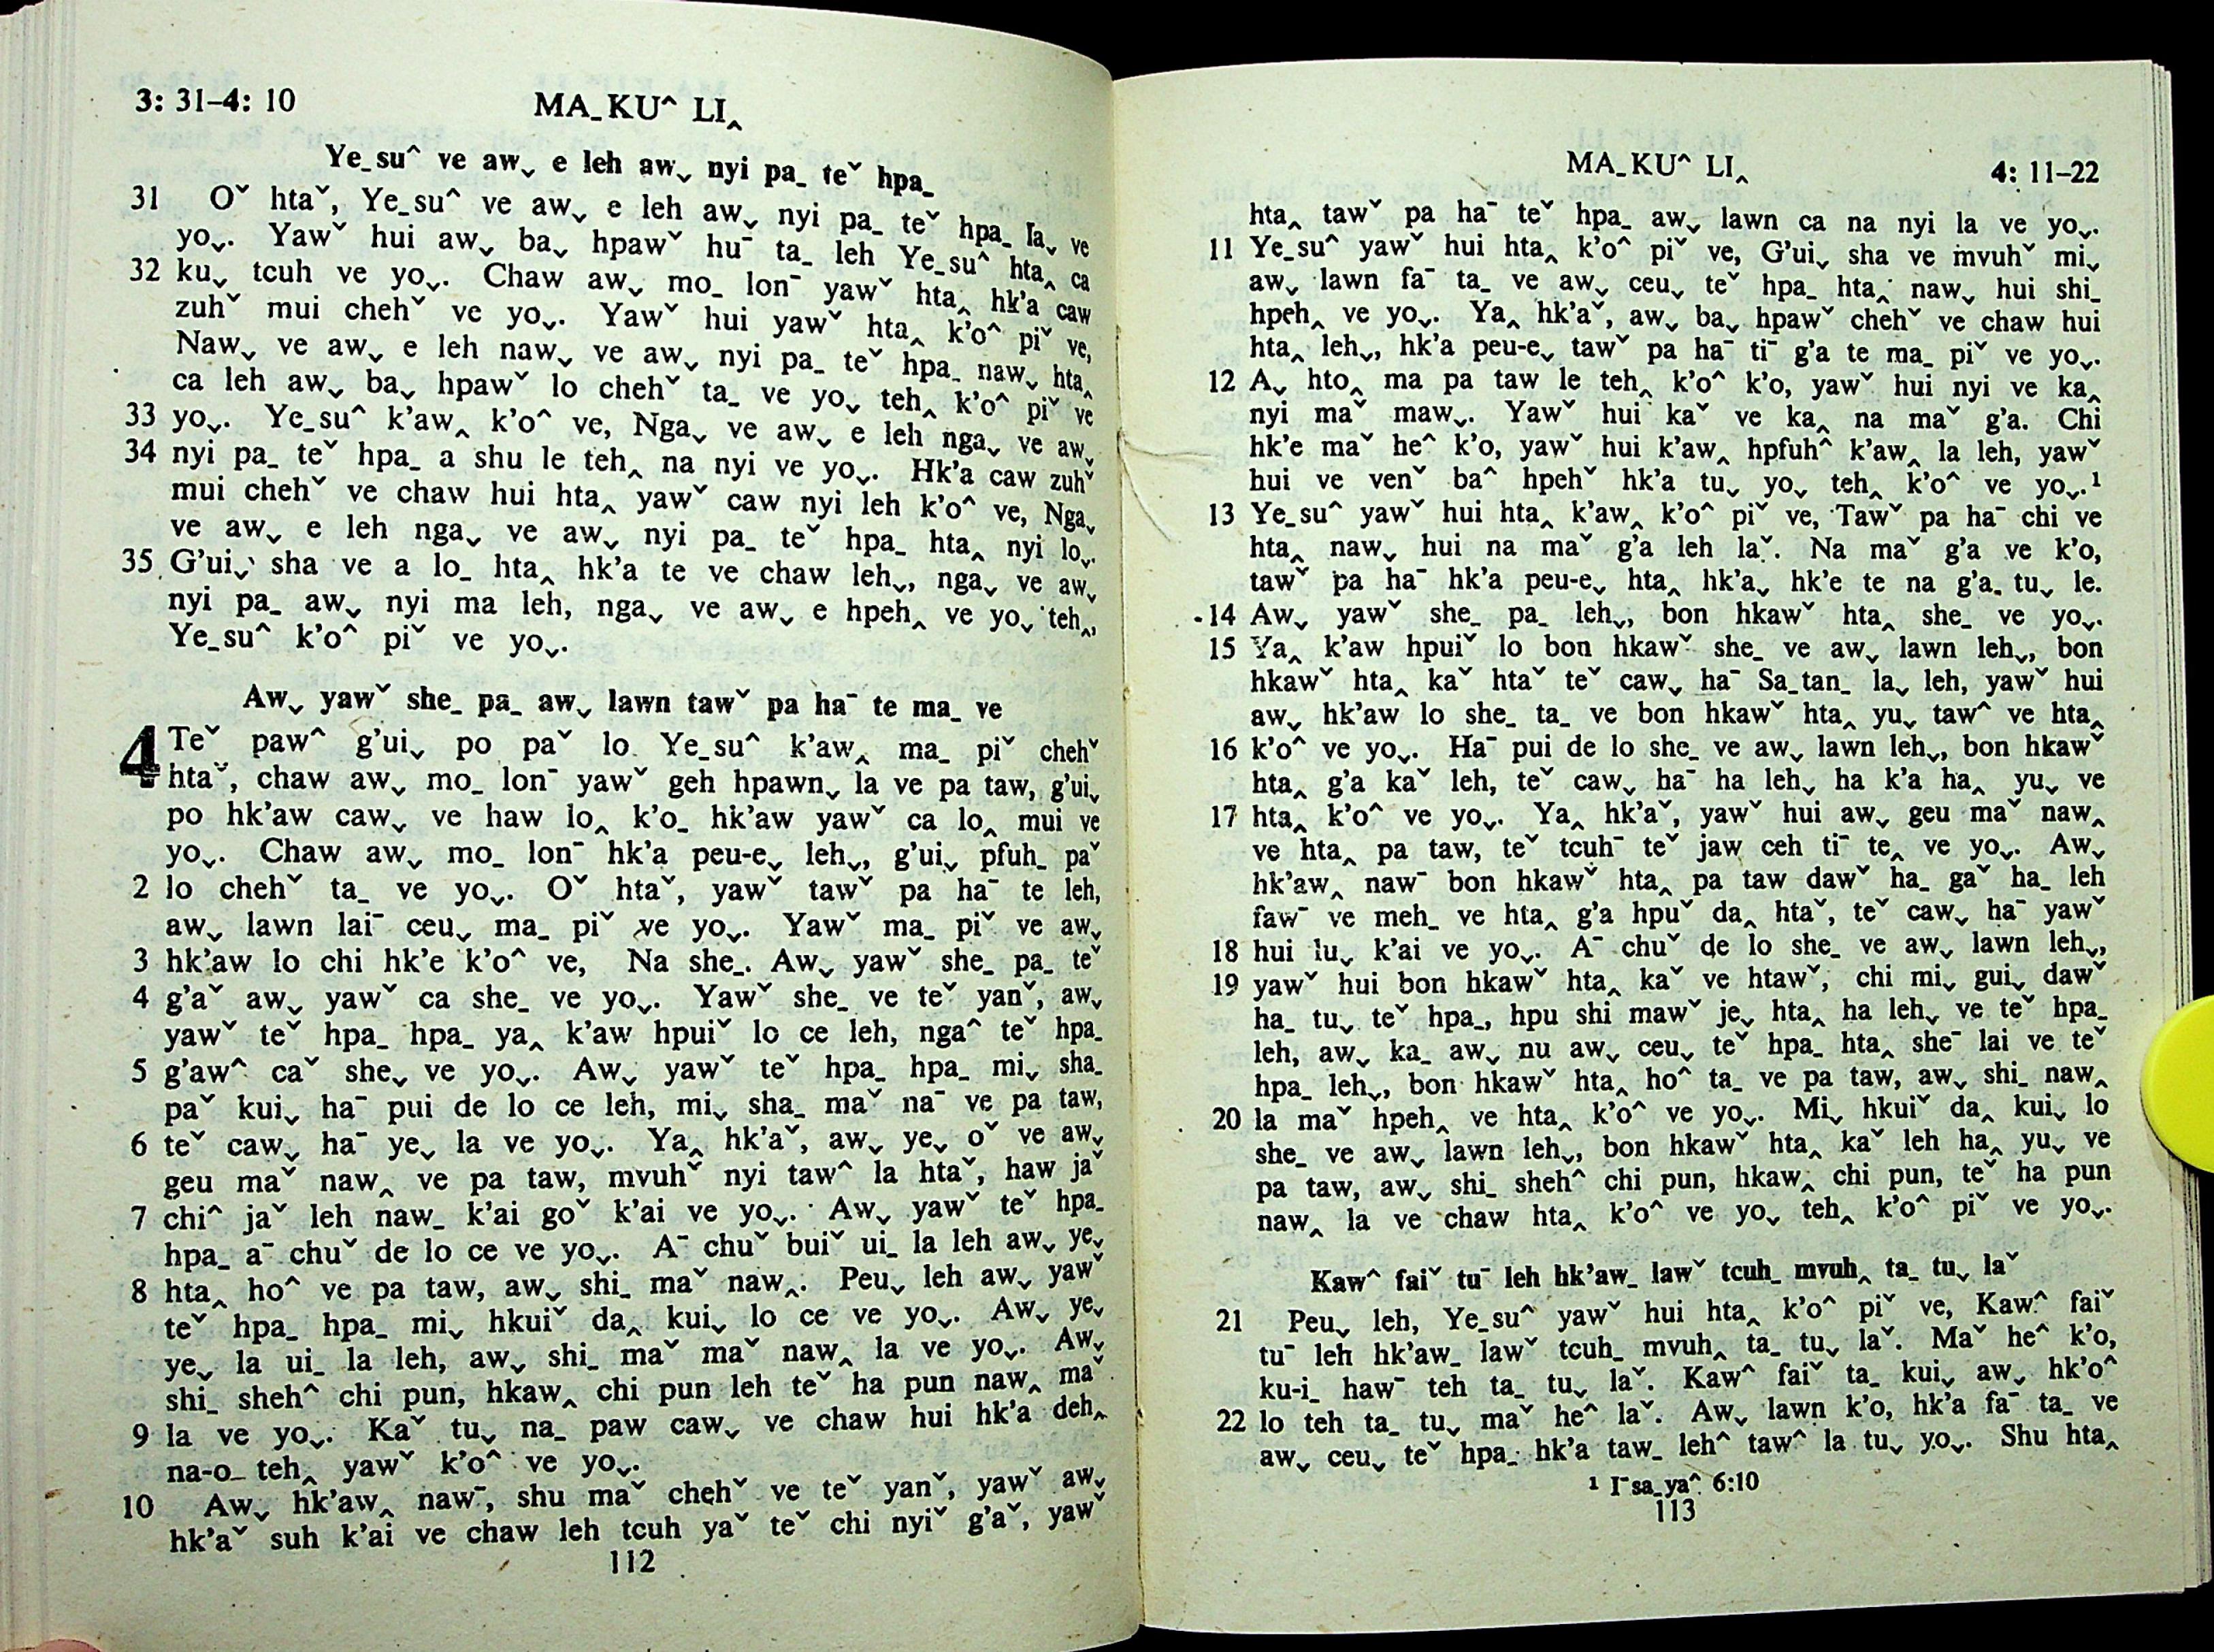 3: 31–4: 10
MA˗KU˄ LI‸
Ye˗su˄ ve aw⌄ e leh aw⌄ nyi pa˗ teˇ hpa˗
31 Oˇ htaˇ, Ye˗su˄ ve aw⌄ e leh aw⌄ nyi pa˗ teˇ hpa˗ la⌄ ve
yo⌄. Yawˇ hui aw⌄ ba⌄ hpawˇ huˉ ta˗ leh Ye˗su˄ hta‸ ca
32 ku⌄ tcuh ve yo⌄. Chaw aw⌄ mo˗ lonˉ yawˇ hta‸ hk’a caw
zuhˇ mui chehˇ ve yo⌄. Yawˇ hui yawˇ hta‸ k’o˄ piˇ ve,
Naw⌄ ve aw⌄ e leh naw⌄ ve aw⌄ nyi pa˗ teˇ hpa˗ naw⌄ hta‸
ca leh aw⌄ ba⌄ hpawˇ lo chehˇ ta˗ ve yo⌄ teh‸ k’o˄ piˇ ve
33 yo⌄. Ye˗su˄ k’aw‸ k’o˄ ve, Nga⌄ ve aw⌄ e leh nga⌄ ve aw⌄
34 nyi pa˗ teˇ hpa˗ a shu le teh‸ na nyi ve yo⌄. Hk’a caw zuhˇ
mui chehˇ ve chaw hui hta‸ yawˇ caw nyi leh k’o˄ ve, Nga⌄
ve aw⌄ e leh nga⌄ ve aw⌄ nyi pa˗ teˇ hpa˗ hta‸ nyi lo⌄.
35 G’ui⌄ sha ve a lo˗ hta‸ hk’a te ve chaw leh⌄, nga⌄ ve aw⌄
nyi pa˗ aw⌄ nyi ma leh, nga⌄ ve aw⌄ e hpeh‸ ve yo⌄ teh‸,
Ye˗su˄ k’o˄ piˇ ve yo⌄.
Aw⌄ yawˇ she˗ pa˗ aw⌄ lawn tawˇ pa haˉ te ma˗ ve
4 Teˇ paw˄ g’ui⌄ po paˇ lo Ye˗su˄ k’aw‸ ma˗ piˇ chehˇ
htaˇ, chaw aw⌄ mo˗ lonˉ yawˇ geh hpawn⌄ la ve pa taw, g’ui⌄
po hk’aw caw⌄ ve haw lo‸ k’o˗ hk’aw yawˇ ca lo‸ mui ve
yo⌄. Chaw aw⌄ mo˗ lonˉ hk’a peu-e⌄ leh⌄, g’ui⌄ pfuh˗ paˇ
2 lo chehˇ ta˗ ve yo⌄. Oˇ htaˇ, yawˇ tawˇ pa haˉ te leh,
aw⌄ lawn laiˉ ceu⌄ ma˗ piˇ ve yo⌄. Yawˇ ma˗ piˇ ve aw⌄
3 hk’aw lo chi hk’e k’o˄ ve, Na she˗. Aw⌄ yawˇ she˗ pa˗ teˇ
4 g’aˇ aw⌄ yawˇ ca she˗ ve yo⌄. Yawˇ she˗ ve teˇ yanˇ, aw⌄
yawˇ teˇ hpa˗ hpa˗ ya‸ k’aw hpuiˇ lo ce leh, nga˄ teˇ hpa˗
5 g’aw˄ caˇ she⌄ ve yo⌄. Aw⌄ yawˇ teˇ hpa˗ hpa˗ mi⌄ sha˗
paˇ kui⌄ haˉ pui de lo ce leh, mi⌄ sha˗ maˇ naˉ ve pa taw,
6 teˇ caw⌄ haˉ ye⌄ la ve yo⌄. Ya‸ hk’aˇ, aw⌄ ye⌄ oˇ ve aw⌄
geu maˇ naw‸ ve pa taw, mvuhˇ nyi taw˄ la htaˇ, haw jaˇ
7 chi˄ jaˇ leh naw˗ k’ai goˇ k’ai ve yo⌄. Aw⌄ yawˇ teˇ hpa˗
hpa˗ aˉ chuˇ de lo ce ve yo⌄. Aˉ chuˇ buiˇ ui˗ la leh aw⌄ ye⌄
8 hta‸ ho˄ ve pa taw, aw⌄ shi˗ maˇ naw‸. Peu⌄ leh aw⌄ yawˇ
teˇ hpa˗ hpa˗ mi⌄ hkuiˇ da‸ kui⌄ lo ce ve yo⌄. Aw⌄ ye⌄
ye⌄ la ui˗ la leh, aw⌄ shi˗ maˇ maˇ naw‸ la ve yo⌄. Aw⌄
shi˗ sheh˄ chi pun, hkaw‸ chi pun leh teˇ ha pun naw‸ maˇ
9 la ve yo⌄. Kaˇ tu⌄ na˗ paw caw⌄ ve chaw hui hk’a deh‸
na-o˗ teh‸ yawˇ k’o˄ ve yo⌄.
10 Aw⌄ hk’aw‸ nawˉ, shu maˇ chehˇ ve teˇ yanˇ, yawˇ aw⌄
hk’aˇ suh k’ai ve chaw leh tcuh yaˇ teˇ chi nyiˇ g’aˇ, yawˇ
112
MA˗KU˄ LI‸
4: 11–22
hta‸ tawˇ pa haˉ teˇ hpa˗ aw⌄ lawn ca na nyi la ve yo⌄.
11 Ye˗su˄ yawˇ hui hta‸ k’o˄ piˇ ve, G’ui⌄ sha ve mvuhˇ mi⌄
aw⌄ lawn faˉ ta˗ ve aw⌄ ceu⌄ teˇ hpa˗ hta‸ naw⌄ hui shi˗
hpeh‸ ve yo⌄. Ya‸ hk’aˇ, aw⌄ ba⌄ hpawˇ chehˇ ve chaw hui
hta‸ leh⌄, hk’a peu-e⌄ tawˇ pa haˉ tiˉ g’a te ma˗ piˇ ve yo⌄.
12 A⌄ hto‸ ma pa taw le teh‸ k’o˄ k’o, yawˇ hui nyi ve ka‸
nyi maˇ maw⌄. Yawˇ hui kaˇ ve ka‸ na maˇ g’a. Chi
hk’e maˇ he˄ k’o, yawˇ hui k’aw‸ hpfuh˄ k’aw‸ la leh, yawˇ
hui ve venˇ ba˄ hpehˇ hk’a tu⌄ yo⌄ teh‸ k’o˄ ve yo⌄.¹
13 Ye˗su˄ yawˇ hui hta‸ k’aw‸ k’o˄ piˇ ve, Tawˇ pa haˉ chi ve
hta‸ naw⌄ hui na maˇ g’a leh laˇ. Na maˇ g’a ve k’o,
tawˇ pa haˉ hk’a peu-e⌄ hta‸ hk’a⌄ hk’e te na g’a tu⌄ le.
14 Aw⌄ yawˇ she˗ pa˗ leh⌄, bon hkawˇ hta‸ she˗ ve yo⌄.
15 Ya‸ k’aw hpuiˇ lo bon hkawˇ she˗ ve aw⌄ lawn leh⌄, bon
hkawˇ hta‸ kaˇ htaˇ teˇ caw⌄ haˉ Sa˗tan˗ la⌄ leh, yawˇ hui
aw⌄ hk’aw lo she˗ ta˗ ve bon hkawˇ hta‸ yu⌄ taw˄ ve hta‸
16 k’o˄ ve yo⌄. Haˉ pui de lo she˗ ve aw⌄ lawn leh⌄, bon hkawˇ
hta‸ g’a kaˇ leh, teˇ caw⌄ haˉ ha leh⌄ ha k’a ha‸ yu⌄ ve
17 hta‸ k’o˄ ve yo⌄. Ya‸ hk’aˇ, yawˇ hui aw⌄ geu maˇ naw‸
ve hta‸ pa taw, teˇ tcuhˉ teˇ jaw ceh tiˉ te‸ ve yo⌄. Aw⌄
hk’aw‸ nawˉ bon hkawˇ hta‸ pa taw dawˇ ha˗ gaˇ ha˗ leh
fawˉ ve meh˗ ve hta‸ g’a hpuˇ da‸ htaˇ, teˇ caw⌄ haˉ yawˇ
18 hui lu⌄ k’ai ve yo⌄. Aˉ chuˇ de lo she˗ ve aw⌄ lawn leh⌄,
19 yawˇ hui bon hkawˇ hta‸ kaˇ ve htawˇ, chi mi⌄ gui⌄ dawˇ
ha˗ tu⌄ teˇ hpa˗, hpu shi mawˇ je⌄ hta‸ ha leh⌄ ve teˇ hpa˗
leh, aw⌄ ka˗ aw⌄ nu aw⌄ ceu⌄ teˇ hpa˗ hta‸ sheˉ lai ve teˇ
hpa˗ leh⌄, bon hkawˇ hta‸ ho˄ ta˗ ve pa taw, aw⌄ shi˗ naw‸
20 la maˇ hpeh‸ ve hta‸ k’o˄ ve yo⌄. Mi⌄ hkuiˇ da‸ kui⌄ lo
she˗ ve aw⌄ lawn leh⌄, bon hkawˇ hta‸ kaˇ leh ha‸ yu⌄ ve
pa taw, aw⌄ shi˗ sheh˄ chi pun, hkaw‸ chi pun, teˇ ha pun
naw‸ la ve chaw hta‸ k’o˄ ve yo⌄ teh‸ k’o˄ piˇ ve yo⌄.
Kaw˄ faiˇ tuˉ leh hk’aw˗ lawˇ tcuh˗ mvuh‸ ta˗ tu⌄ laˇ
21 Peu⌄ leh, Ye˗su˄ yawˇ hui hta‸ k’o˄ piˇ ve, Kaw˄ faiˇ
tuˉ leh hk’aw˗ lawˇ tcuh˗ mvuh‸ ta˗ tu⌄ laˇ. Maˇ he˄ k’o,
ku-i˗ hawˉ teh ta˗ tu⌄ laˇ. Kaw˄ faiˇ ta˗ kui⌄ aw⌄ hk’o˄
22 lo teh ta˗ tu⌄ maˇ he˄ laˇ. Aw⌄ lawn k’o, hk’a faˉ ta˗ ve
aw⌄ ceu⌄ teˇ hpa˗ hk’a taw˗ leh˄ taw˄ la tu⌄ yo⌄. Shu hta‸
¹ Iˉsa˗ya˄ 6:10
113